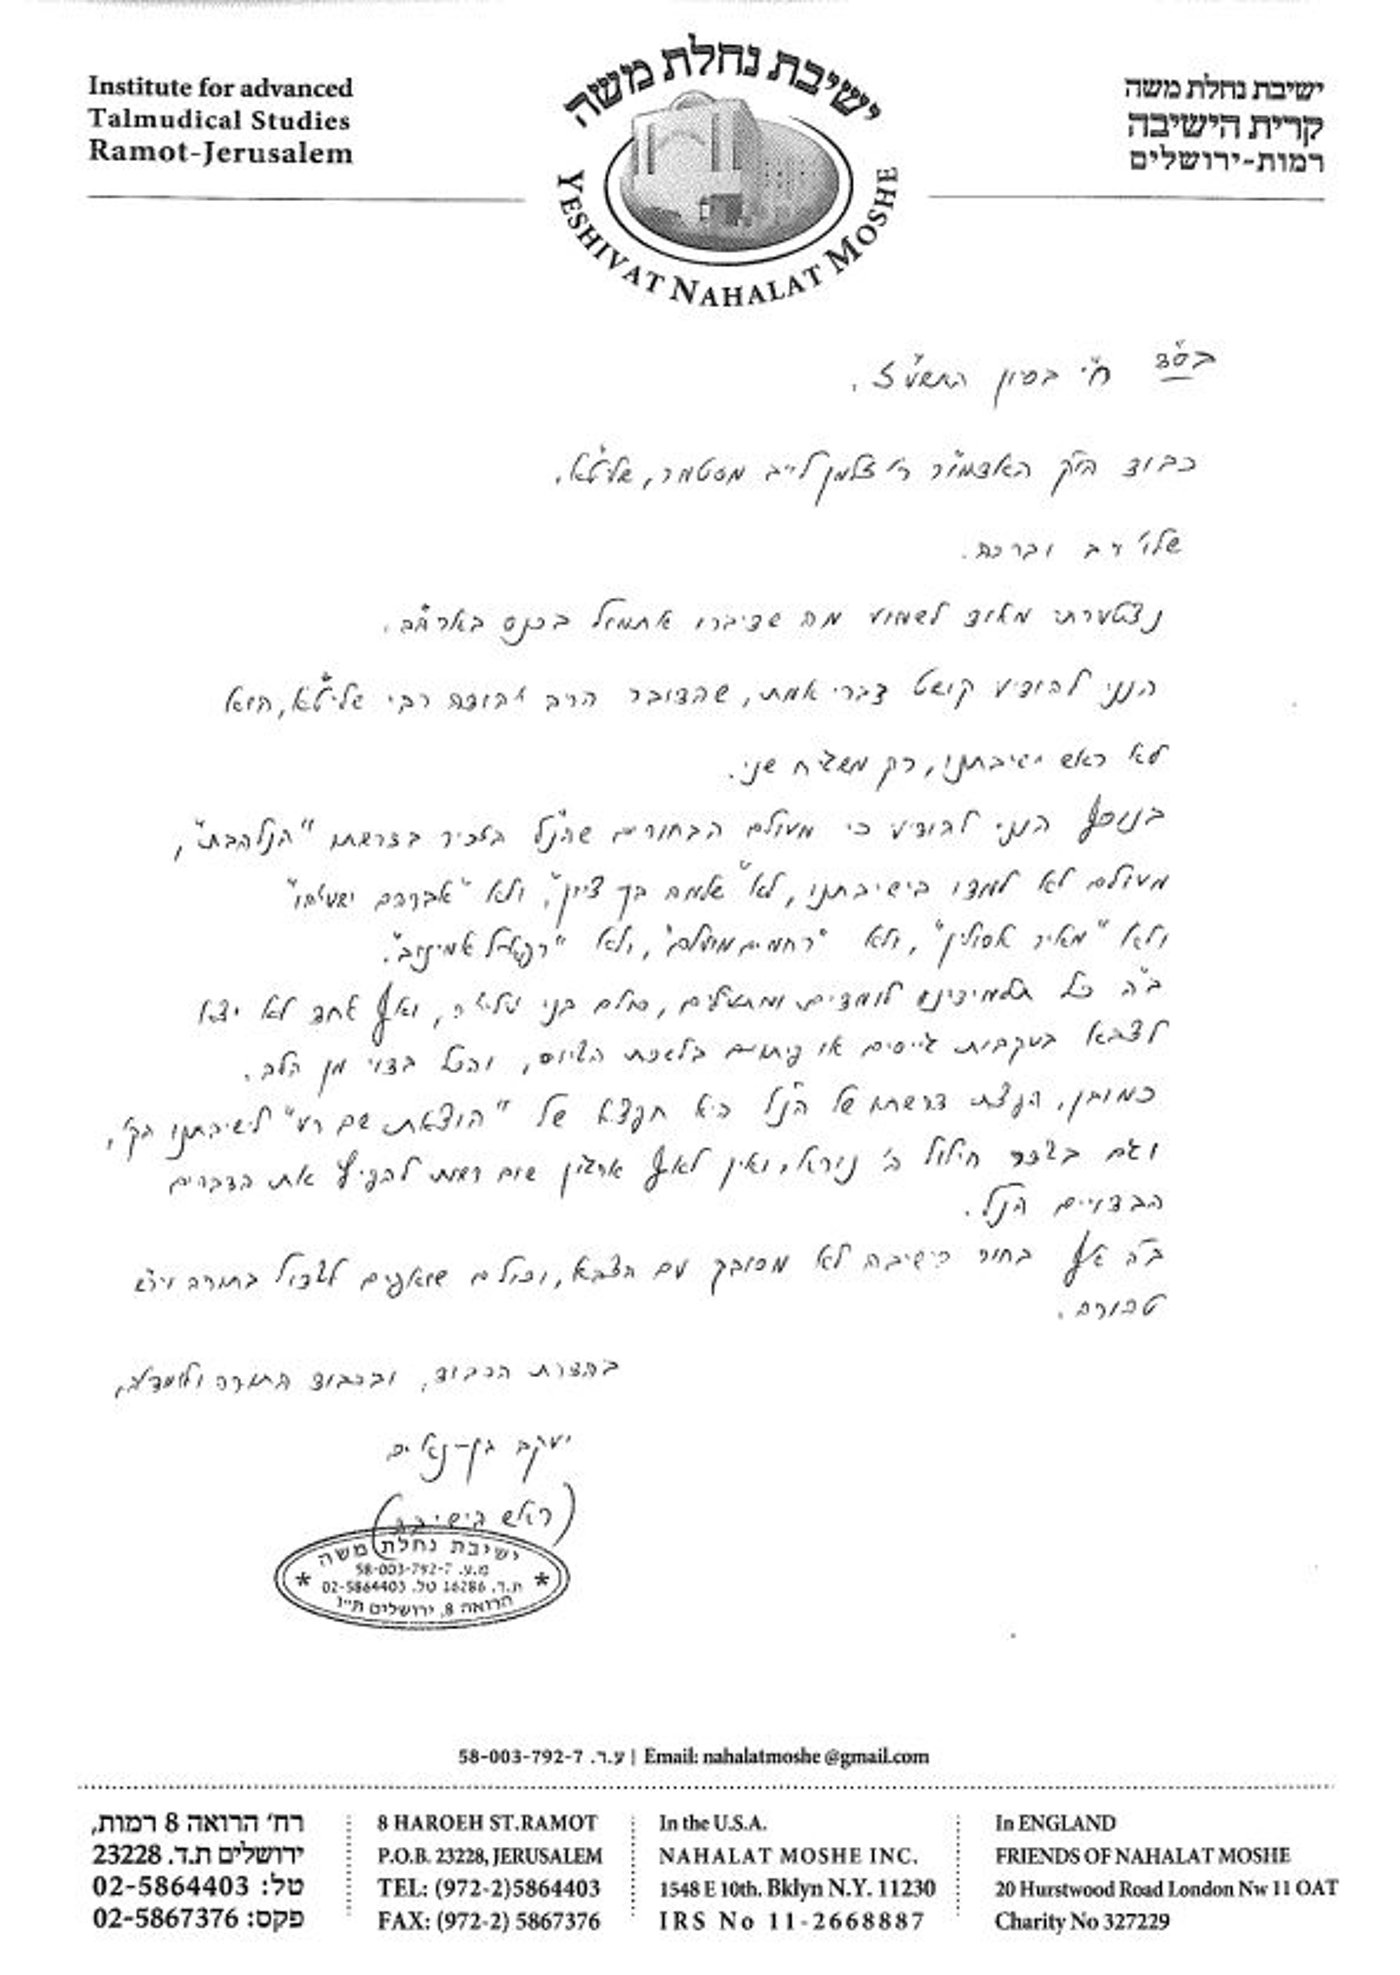 Institute for advanced
Talmudical Studies
Ramot-Jerusalem
ישיבת נחלת משה
YESHIVAT NAHALAT MOSHE
ישיבת נחלת משה
קרית הישיבה
רמות-ירושלים
בס"ד ח"י בסיון התשע"ז.
כבוד הק' האדמו"ר ר' זלמן לייב מסטמר, שליט"א.
שלו' רב וברכה.
נצטערתי מאוד לשמוע מה שדיברו אתמול בכנס בארה"ב.
הנני להודיע קושט דברי אמת, שהדובר הרב יהודה רבי שליט"א, הוא
לא ראש ישיבתנו, רק משגיח שני.
בנוסף הנני להודיע כי מעולם הבחורים שהנ"ל הזכיר בדרשתו "הנלהבת",
מעולם לא למדו בישיבתנו, לא "שלמה בן ציון", ולא "אברהם ישעיהו"
ולא "מאיר אסולין", ולא "רחמים מועלם", ולא "רפאל אמינוב".
ב"ה כל תלמידינו לומדים ומתעלים, כולם בני עליה, ואף אחד לא יצא
לצבא בעקבות גייסים או פיתוים בלשכת הגיוס, והכל בדוי מן הלב.
כמובן, הפצת דרשתו של הנ"ל היא חפצא של "הוצאת שם רע" לישיבתנו הק',
וגם בגדר חילול ה' נורא, ואין לאף ארגון שום רשות להפיץ את הדברים
הבדויים הנ"ל.
ב"ה אף בחור בישיבה לא מסובך עם הצבא, וכולם שואפים לגדול בתורה וירא"ש
טהורה.
בהדרת הכבוד, ובכבוד התורה ולומדיה,
יעקב בן-נאים
(ראש הישיבה)
ישיבת נחלת משה
מ.ע. 58-003-792-7
ת.ד. 16286 טל. 02-5864403
הרואה 8, ירושלים ת"ו
58-003-792-7 ע.ר. | Email: nahalatmoshe@gmail.com
רח' הרואה 8 רמות,
ירושלים ת.ד. 23228
טל: 02-5864403
פקס: 02-5867376
8 HAROEH ST.RAMOT
P.O.B. 23228, JERUSALEM
TEL: (972-2)5864403
FAX: (972-2) 5867376
In the U.S.A.
NAHALAT MOSHE INC.
1548 E 10th. Bklyn N.Y. 11230
IRS No 11-2668887
In ENGLAND
FRIENDS OF NAHALAT MOSHE
20 Hurstwood Road London Nw 11 OAT
Charity No 327229